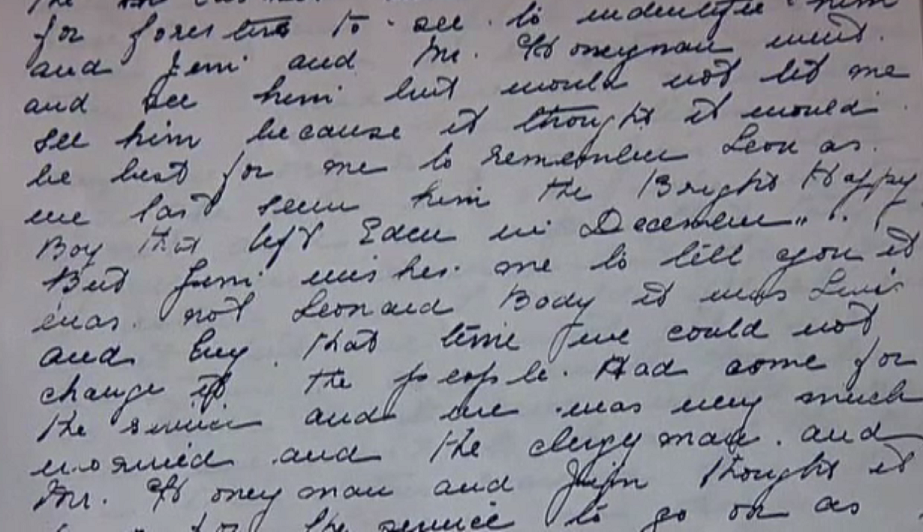 for to see to indentify him
and Jim and Mr. Honeyman went.
and see him but would not let me
see him because it thought it would
be best for me to remember Leon as.
we last seen him the Bright Happy
Boy that left Eden in December".
But Jim wishes. me to tell you it
was. not Leonard Body it was
and buy. that time we could not
change it the people. Had come for
the service and we was very much
worried and the clergyman. and
Mr. Honeyman and Jim thought it
for the service to go on as